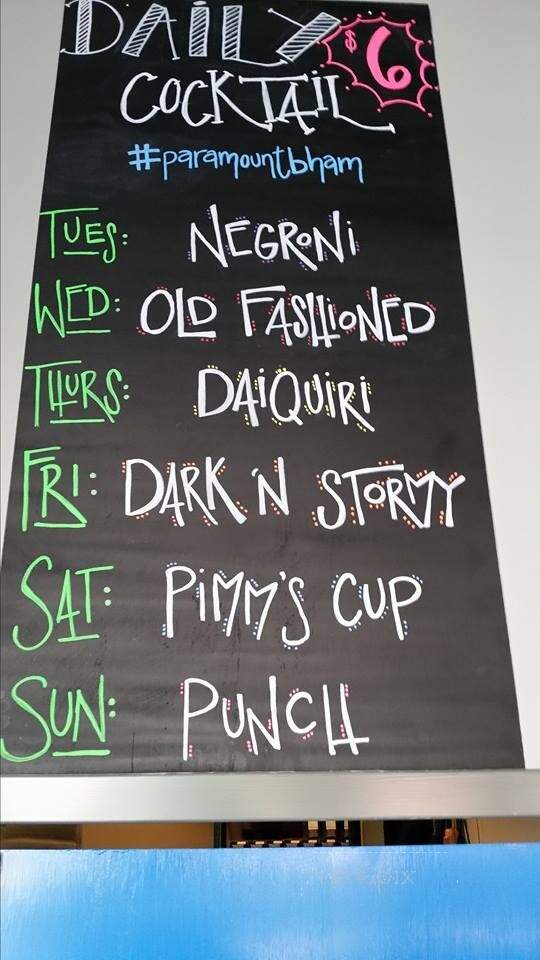 DAILY
$6
COCKTAIL
#paramountbham
TUES: NEGRONi
WED: OLD FASHiONED
THURS: DAiQUiRi
FRI: DARK 'N STORMY
SAT: PiMM'S CUP
SUN: PUNCH